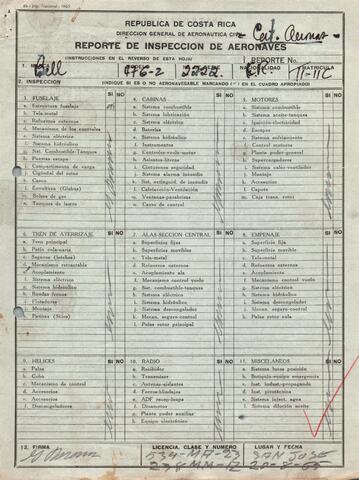 REPUBLICA DE COSTA RICA
DIRECCION GENERAL DE AERONAUTICA CIVIL
REPORTE DE INSPECCION DE AERONAVES
(INSTRUCCIONES EN EL REVERSO DE ESTA HOJA) REPORTE No.
1. Bell 47G-2 2222 NACIONALIDAD MATRICULA TI-111C
2. INSPECCION (INDIQUE SI ES O NO AERONAVEGABLE MARCANDO EN EL CUADRO APROPIADO)
3. FUSELAJE SI NO
a. Estructura fuselaje
b. Tela-metal
c. Refuerzos externos
d. Mecanismo de los controles
e. Sistema eléctrico
f. Sistema hidráulico
g. Sist. Combustible-Tanques
h. Puertas escape
i. Compartimento de carga
j. Capó
4. CABINAS SI NO
a. Sistema combustible
b. Sistema lubricación
c. Sistema eléctrico
d. Baterías
e. Sistema hidráulico
f. Instrumentos
g. Controles-vuelo-motor
h. Asientos-literas
i. Cinturones seguridad
j. Sistema alarma incendio
k. Sist. extinguid. de incendio
l. Calefacción-Ventilación
m. Ventanas-parabrisas
5. MOTORES SI NO
a. Sistema combustible
b. Sistema aceite-tanques
c. Ignición-electricidad
d. Escapes
e. Sistema enfriamiento
f. Controles motor
g. Planta poder-general
h. Supercargadores
i. Sistema calor-ventilador
j. Montaje
k. Accesorios
l. Capots
m. Caja trans. rotor
6. TREN DE ATERRIZAJE SI NO
a. Tren principal
b. Patín cola-nariz
d. Mecanismo retractable
e. Acoplamiento
f. Sistema eléctrico
g. Sistema hidráulico
h. Ruedas frenos
i. Flotadores
j. Montaje
k. Patines (Skies)
7. ALAS-SECCION CENTRAL SI NO
a. Superficies fijas
b. Superficies movibles
c. Tela-metal
d. Refuerzos externos
e. Acoplamiento ala
f. Mecanismo control vuelo
g. Sist. combustible-tanques
h. Sistema eléctrico
i. Sistema hidráulico
j. Sistema descongelador
k. Mecan. seguro-control
l. Palas rotor principal
8. EMPENAJE SI NO
a. Superficie fija
b. Superficie movible
c. Tela-metal
d. Refuerzos externos
e. Acoplamiento
f. Mecanismo control vuelo
g. Sistema eléctrico
h. Sistema hidráulico
i. Sistema descongelador
j. Mecan. seguro-control
k. Palas rotor cola
9. HELICES SI NO
a. Palas
b. Cubo
c. Mecanismo de control
d. Accesorios
e. Descongeladores
10. RADIO SI NO
a. Recibidor
b. Transmisor
c. Antenas-aislantes
d. Forros-blindajes
e. ADF receptor
f. Dinamotor
g. Planta poder auxiliar
h. Equipo electrónico
11. MISCELANEOS SI NO
a. Sistema luces posición
b. Botiquín-equipo emergencia
c. Inst. industr.-propaganda
d. Inst. pirotécnica
e. Sistema inject. agua
f. Sistema dilución aceite
12. FIRMA LICENCIA, CLASE Y NUMERO LUGAR Y FECHA
534-MA-23 SAN JOSE
238 MM-12 20-8-65